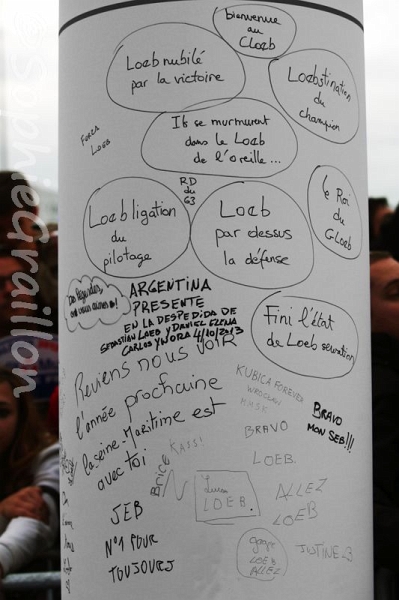 bienvenue
au
Cloeb
Loeb nubilé
par la victoire
Loebstination
du
champion
FORZA
LOEB
Ils se murmurent
dans le Loeb
de l'oreille...
RD
du
63
Loebligation
du
pilotage
Loeb
par dessus
la défense
Le Roi
du
GLoeb
ARGENTINA
PRESENTE
EN LA DESPEDIDA DE
SEBASTIAN LOEB Y DANIEL ELENA
CARLOS Y NORA 4/10/2013
Fini l'état
de Loeb servation
Reviens nous voir
l'année prochaine
la seine-Maritime est
avec toi
KUBICA FOREVER
WROCŁAW
BRAVO
MON SEB!!!
BRAVO
LOEB.
KASS!
Brice
Lucas
LOEB.
ALLEZ
LOEB
JEB
N°1 POUR
TOUJOURS
LOEB
ALLEZ
JUTINE<3
@Sophiegraillon